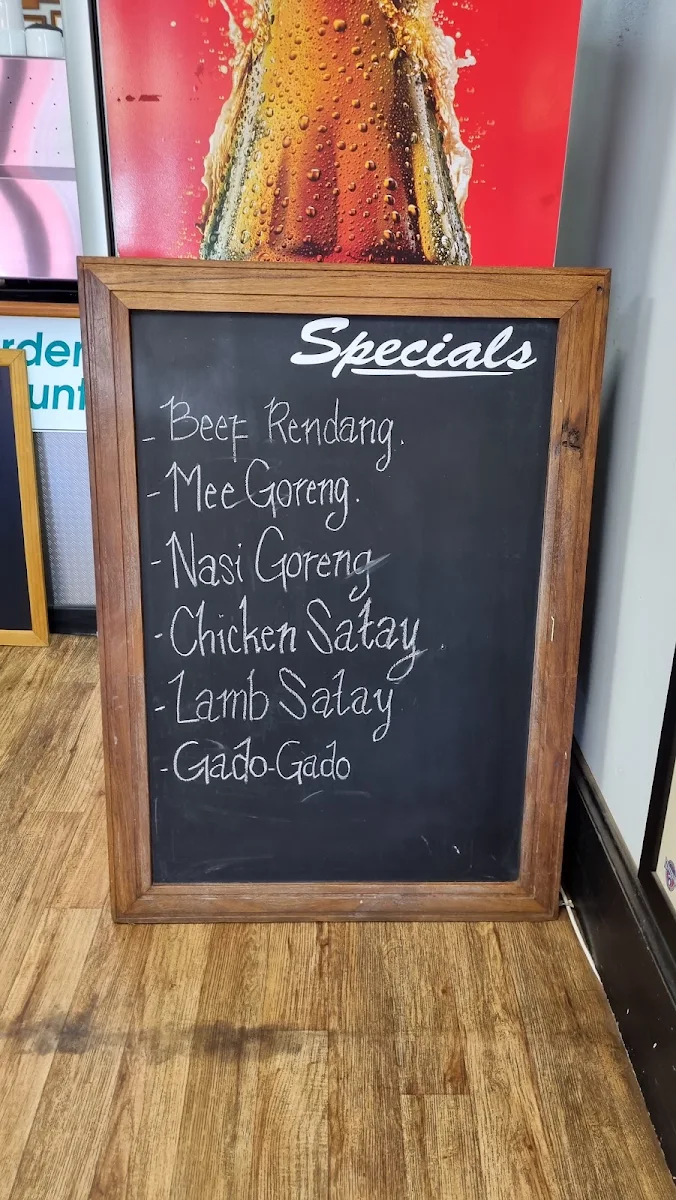 rder
unt
Specials
- Beef Rendang.
- Mee Goreng.
- Nasi Goreng
- Chicken Satay
- Lamb Satay
- Gado-Gado